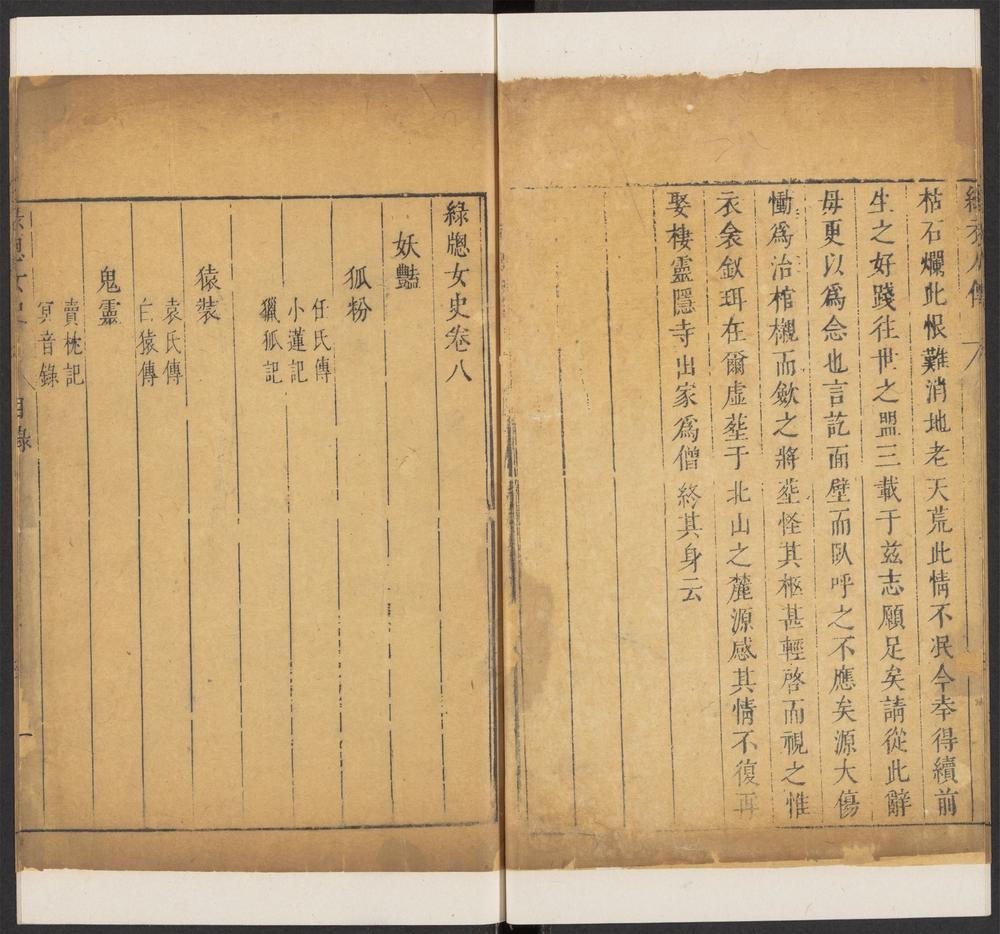 綠衣人傳
枯石爛此恨難消地老天荒此情不泯今幸得續前
生之好踐往世之盟三載于兹志願足矣請從此辭
毋更以爲念也言訖面壁而臥呼之不應矣源大傷
慟爲治棺櫬而斂之將塟怪其柩甚輕啓而視之惟
衣衾釵珥在爾虛塟于北山之麓源感其情不復再
娶棲靈隱寺出家爲僧終其身云
綠牕女史卷八
妖豔
狐粉
任氏傳
小蓮記
獵狐記
猿裝
袁氏傳
白猿傳
鬼靈
賣枕記
冥音錄
綠牕女史 目錄 一